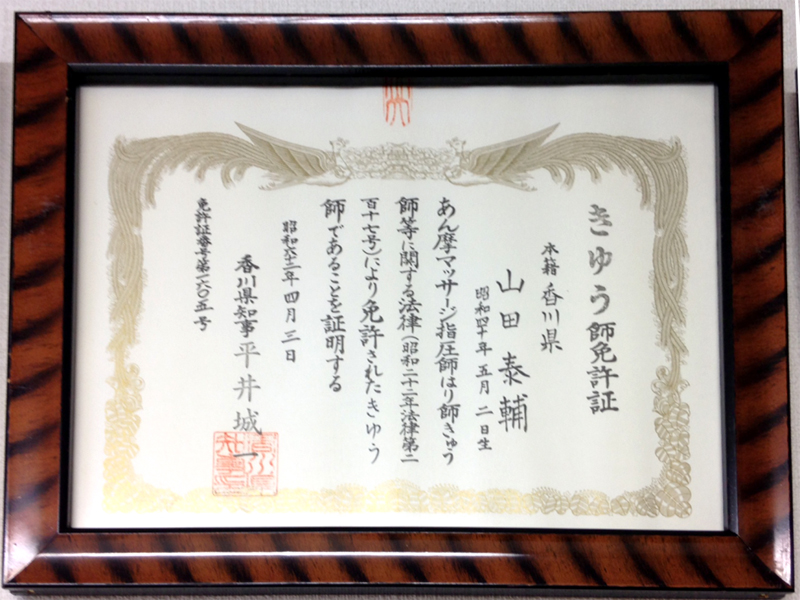 きゆう師免許証
本籍 香川県
山田泰輔
昭和四十年五月二日生
あん摩マッサージ指圧師はり師きゆう
師等に関する法律(昭和二十二年法律第二
百十七号)により免許されたきゆう
師であることを証明する
昭和六十三年四月三日
香川県知事 平井城一
免許証番号第一六〇五号